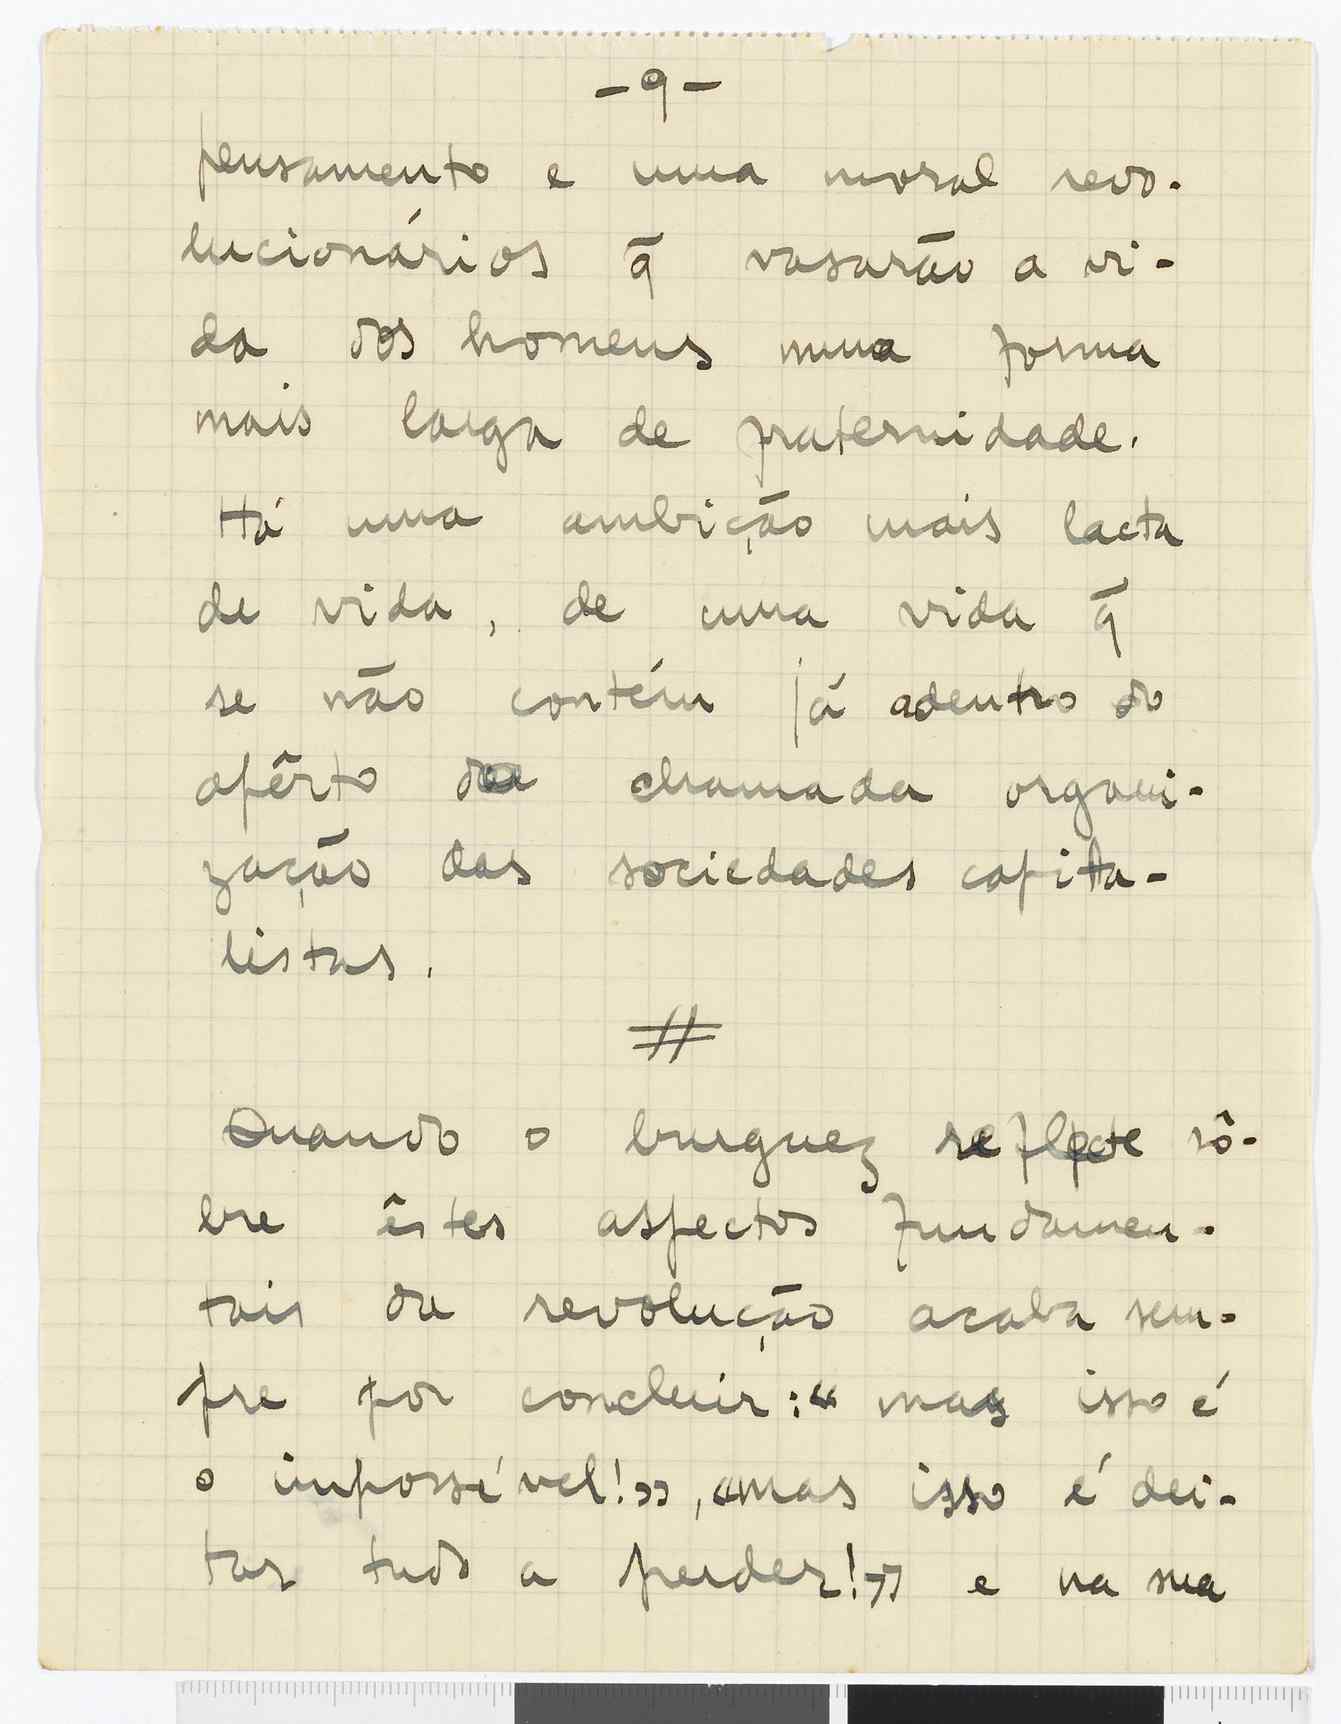 -9-
pensamento e uma moral revo-
lucionários q̃ vasarão a vi-
da dos homens numa forma
mais larga de fraternidade.
Há uma ambição mais lacta
de vida, de uma vida q̃
se não contém já adentro do
apêrto da chamada organi-
zação das sociedades capita-
listas.
#
Quando o burguez reflecte sô-
bre êstes aspectos fundamen-
tais da revolução acaba sem-
pre por concluir: “mas isso é
o impossível!”, “mas isso é dei-
tar tudo a perder!” e na sua